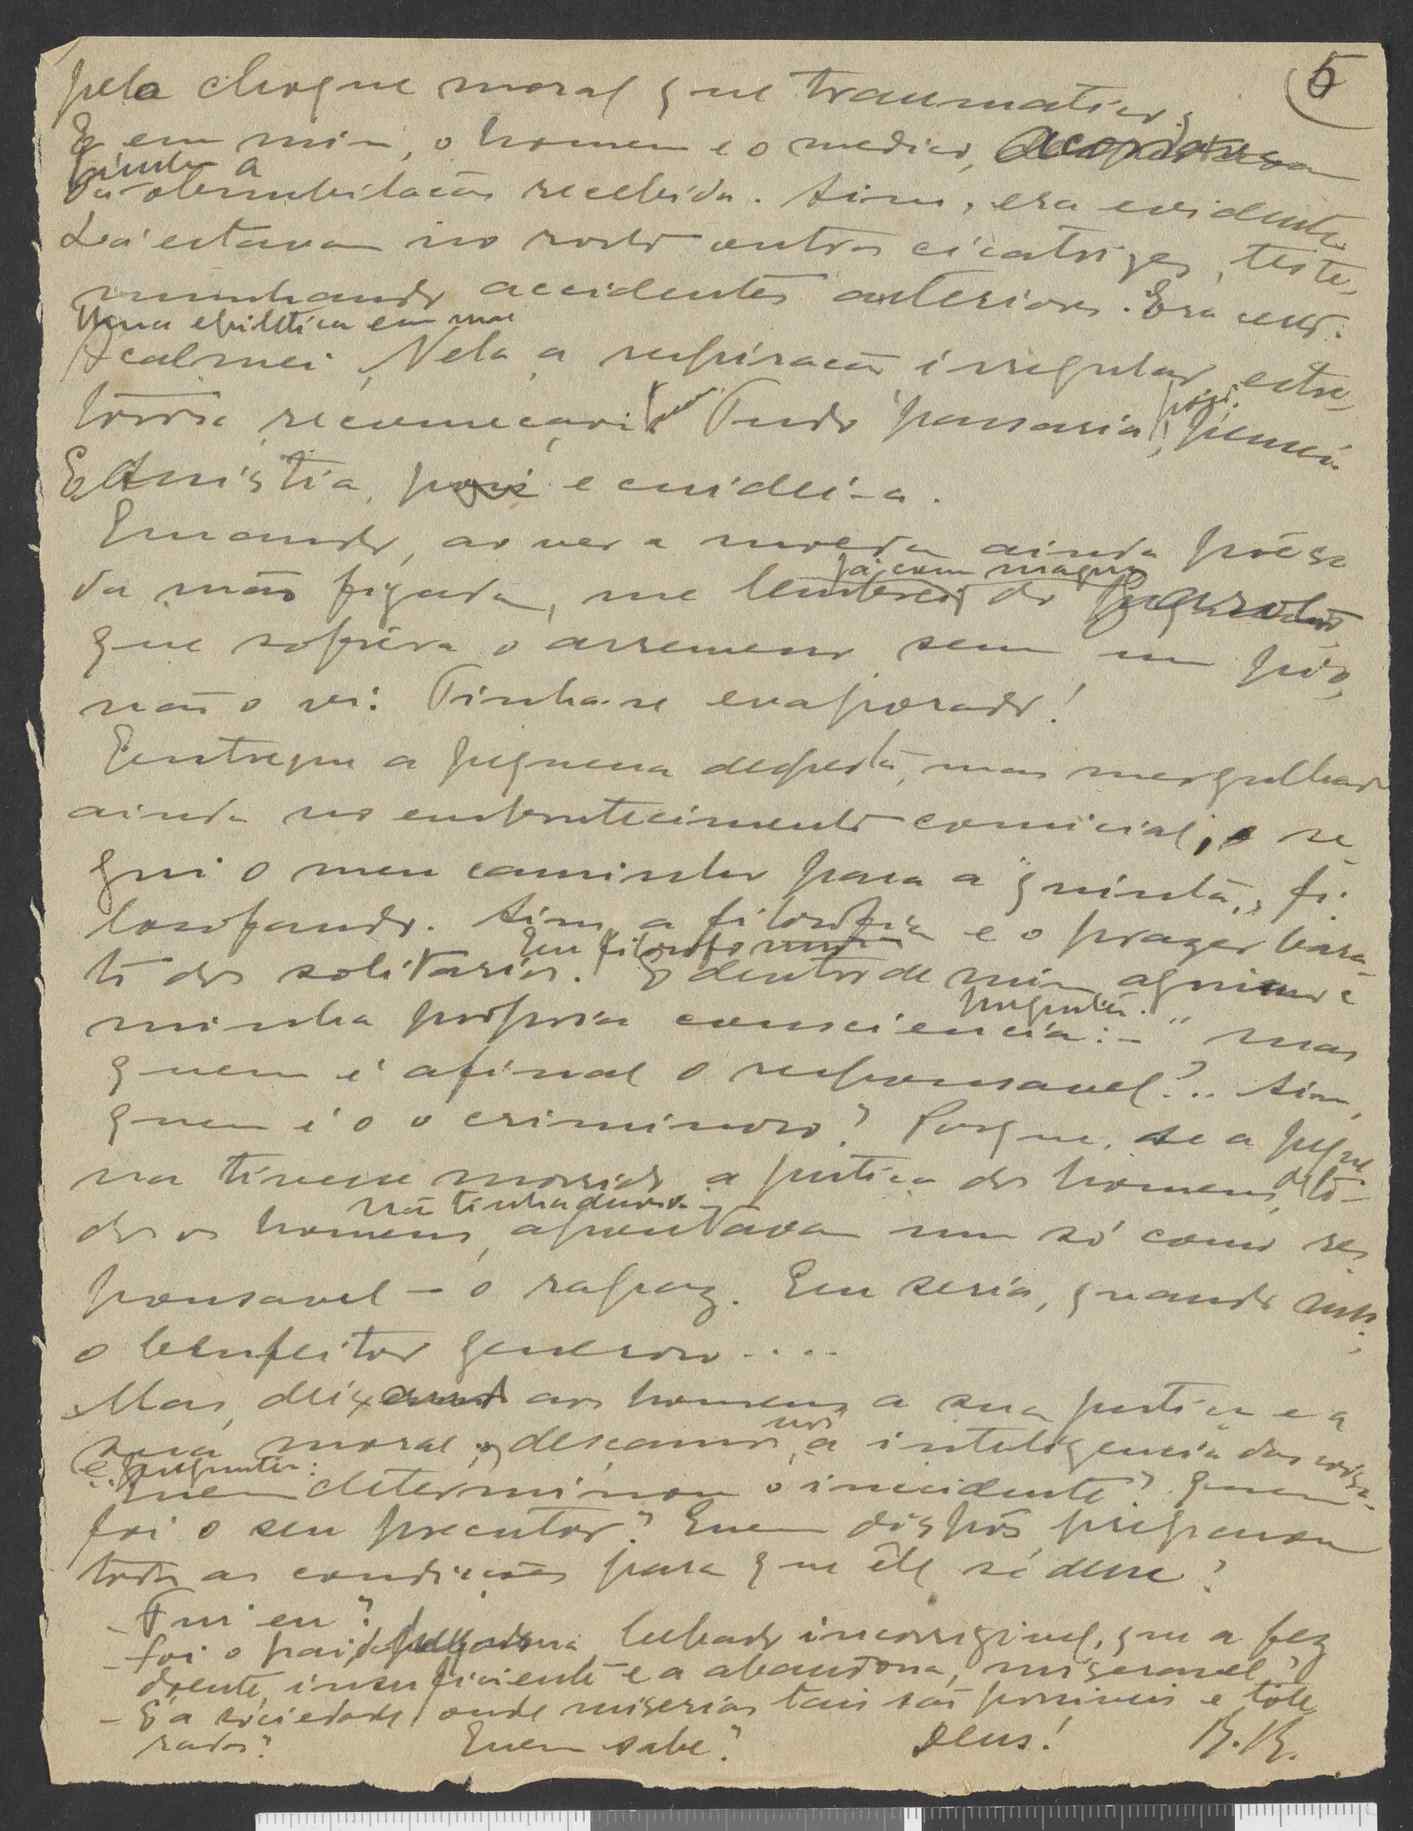 5
pelo choque moral que traumatico,
E em mim, o homem e o medico,
finda a
da obnubilação recebida. Sim, era evidente.
Lá estavam no rosto outras cicatrizes, teste-
munhando accidentes anteriores. Era certo.
Uma epilética em mal
Acalmei. Nela, a respiração irregular, estre-
tórosa, recomeçará. Tudo passaria, pois, pensei.
Assistia, pois e cuidei-a.
Quando, ao ver a moeda ainda prêsa
já com magua
da mão figada, me lembrei do garoto
que sofrera o arremeso sem um pio,
não o vi: Tinha-se evaporado!
Entregue a pequena desperta, mas mergulhada
ainda no embrutecimento comicial, e se-
gui o meu caminho para a "quinta", fi-
losofando. Sim, a filosofia é o prazer bara-
Eu filosofo
to dos solitarios. E dentro de mim alguem é
pregunta:
minha propria consciencia: - "mas
quem é afinal o responsavel?.. Sim,
quem é o o criminoso? Porque, se a peque-
na tivesse morrido, a justiça dos homens, de tô-
não tinha duvida
dos os homens, apontava um só como res-
ponsavel - o rapaz. Eu seria, quando
o benfeitor generoso....
Mas, deixando aos homens a sua justiça e a
nos
sua moral, desçamos á inteligencia das coisas
e pregunta:
Quem determinou o incidente? Quem
foi o seu precutor? Quem dispôs, preparou
todas as condições para que êle se desse?
- Fui eu?
- Foi o pai, bebado incorrigivel, que a fez
doente, insuficiente e a abandona, miseravel?
- É a sociedade onde miserias tais são possiveis e tole-
radas? Quem sabe? Deus! B.B.